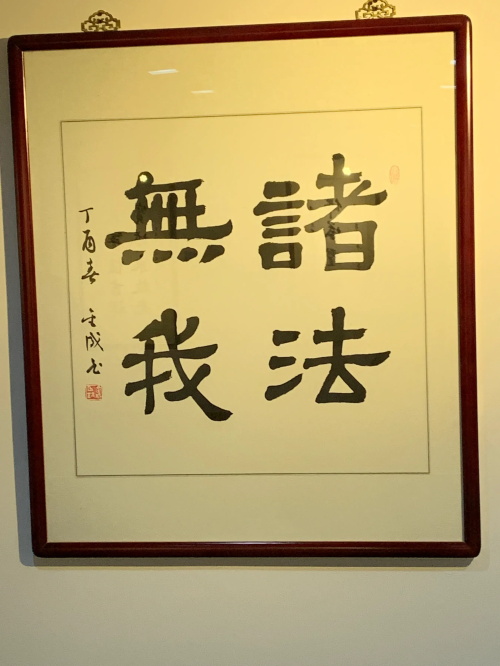 諸法
無我
丁酉春 玉成书